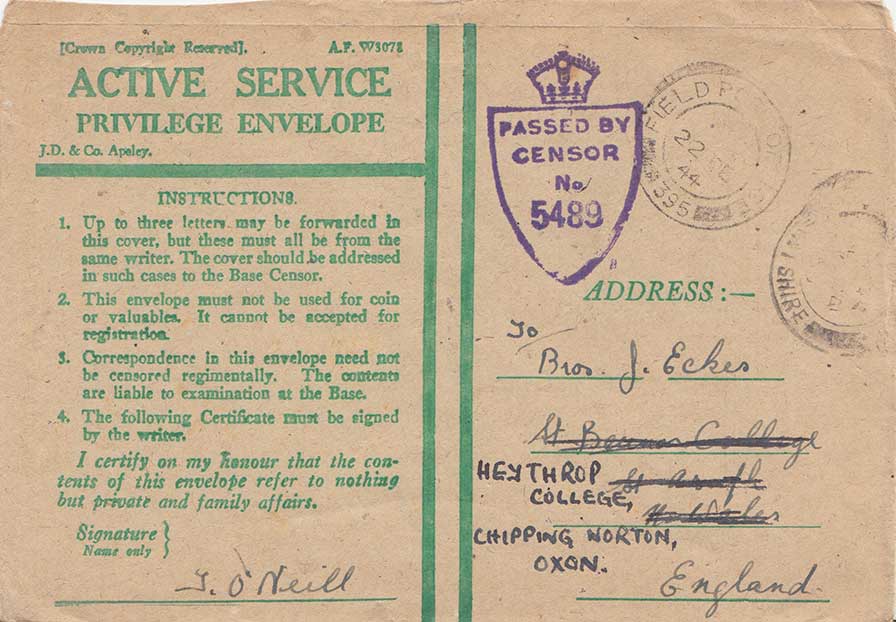 [Crown Copyright Reserved]. A.F. W3078
ACTIVE SERVICE
PRIVILEGE ENVELOPE
J.D. & Co. Apsley.
INSTRUCTIONS.
1. Up to three letters may be forwarded
in this cover, but these must all be from the
same writer. The cover should be addressed
in such cases to the Base Censor.
2. This envelope must not be used for coin
or valuables. It cannot be accepted for
registration.
3. Correspondence in this envelope need not
be censored regimentally. The contents
are liable to examination at the Base.
4. The following Certificate must be signed
by the writer.
I certify on my honour that the con-
tents of this envelope refer to nothing
but private and family affairs.
Signature }
Name only
O'Neill
PASSED BY
CENSOR
No
5489
FIELD POST OF
22
44
395
SHIRE
ADDRESS :—
To
Bros. J. Eckes
St College
HEYTHROP
COLLEGE,
CHIPPING NORTON,
OXON.
England